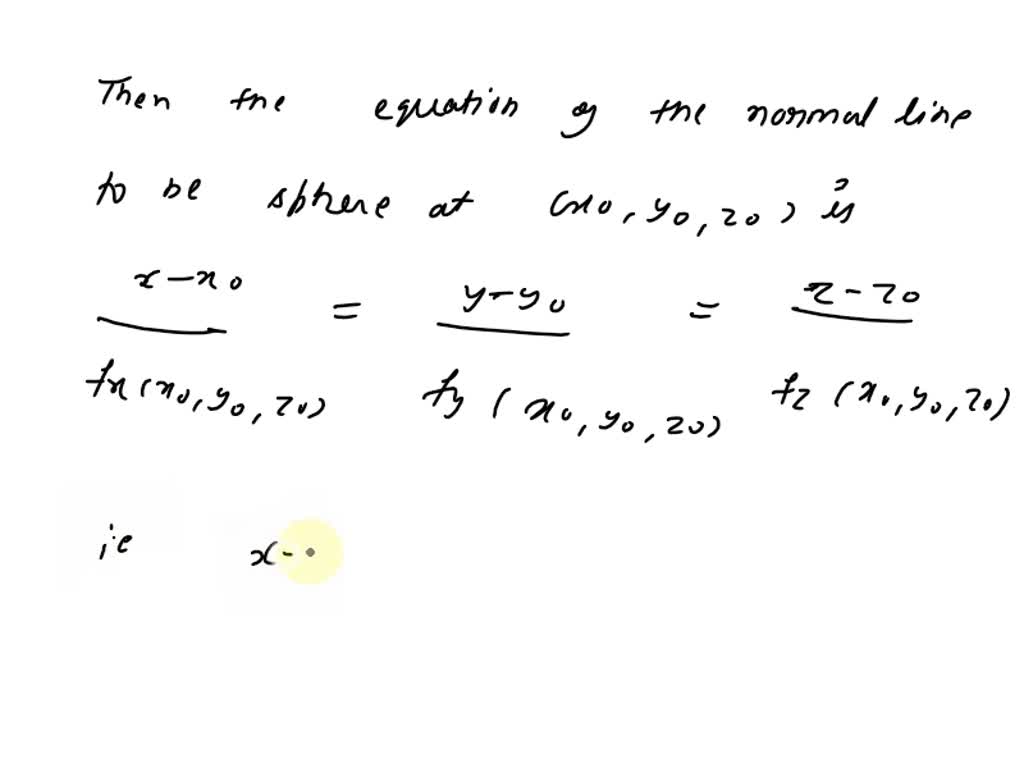 Then the equation of the normal line
to be sphere at (x0, y0, z0) is
x-x0 / fx(x0, y0, z0) = y-y0 / fy(x0, y0, z0) = z-z0 / fz(x0, y0, z0)
i.e x-